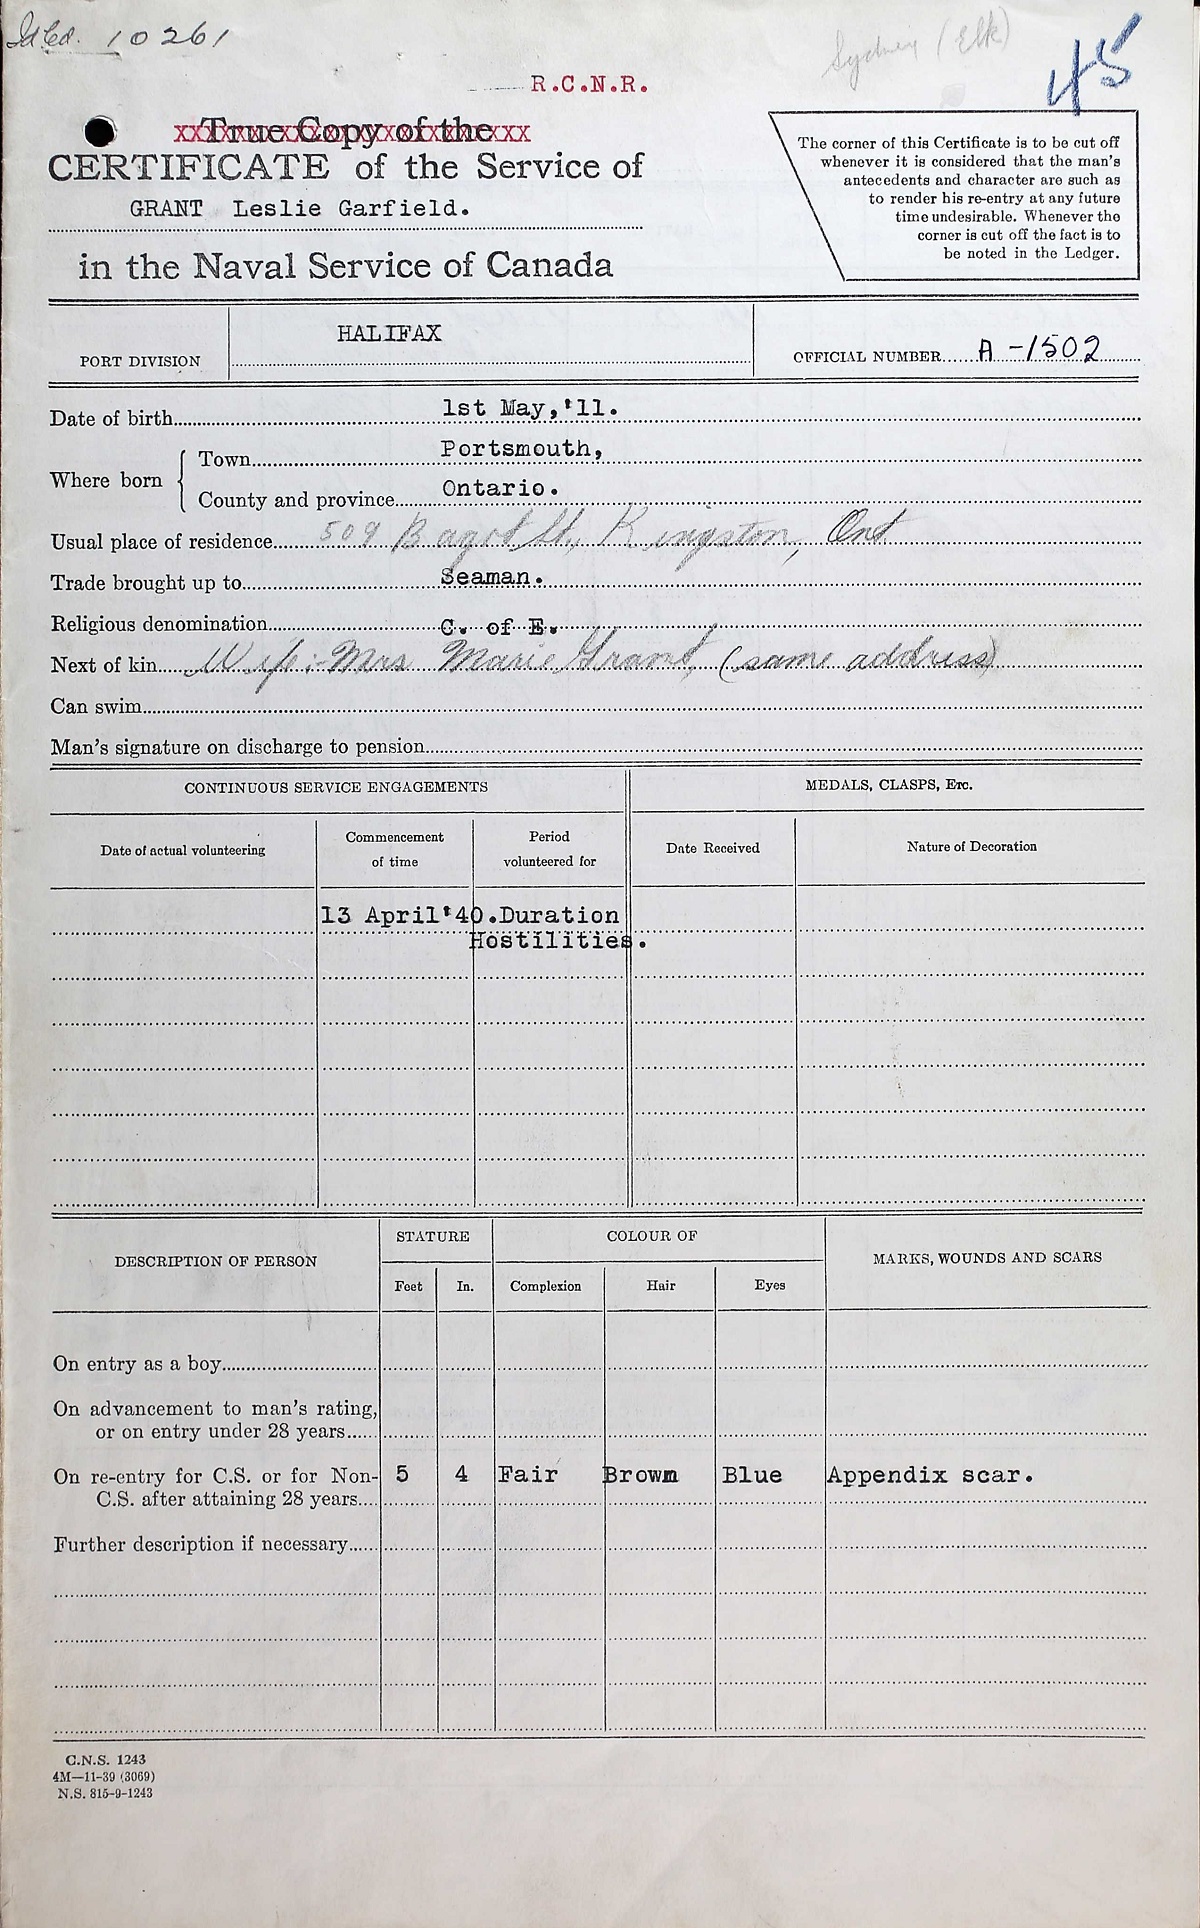 Id Cd. 10261
Sydney (Elk)
45
R.C.N.R.
True Copy of the
CERTIFICATE of the Service of
GRANT Leslie Garfield.
in the Naval Service of Canada
The corner of this Certificate is to be cut off
whenever it is considered that the man's
antecedents and character are such as
to render his re-entry at any future
time undesirable. Whenever the
corner is cut off the fact is to
be noted in the Ledger.
PORT DIVISION HALIFAX OFFICIAL NUMBER A-1502
Date of birth 1st May,'11.
Where born Town Portsmouth,
County and province Ontario.
Usual place of residence 509 Bagot St., Kingston, Ont
Trade brought up to Seaman.
Religious denomination C. of E.
Next of kin Wife:- Mrs Marie Grant, (same address)
Can swim
Man's signature on discharge to pension
CONTINUOUS SERVICE ENGAGEMENTS MEDALS, CLASPS, Etc.
Date of actual volunteering Commencement of time Period volunteered for Date Received Nature of Decoration
13 April'40. Duration
Hostilities.
DESCRIPTION OF PERSON STATURE COLOUR OF MARKS, WOUNDS AND SCARS
Feet In. Complexion Hair Eyes
On entry as a boy
On advancement to man's rating,
or on entry under 28 years
On re-entry for C.S. or for Non- 5 4 Fair Brown Blue Appendix scar.
C.S. after attaining 28 years
Further description if necessary
C.N.S. 1243
4M—11-39 (3069)
N.S. 815-9-1243